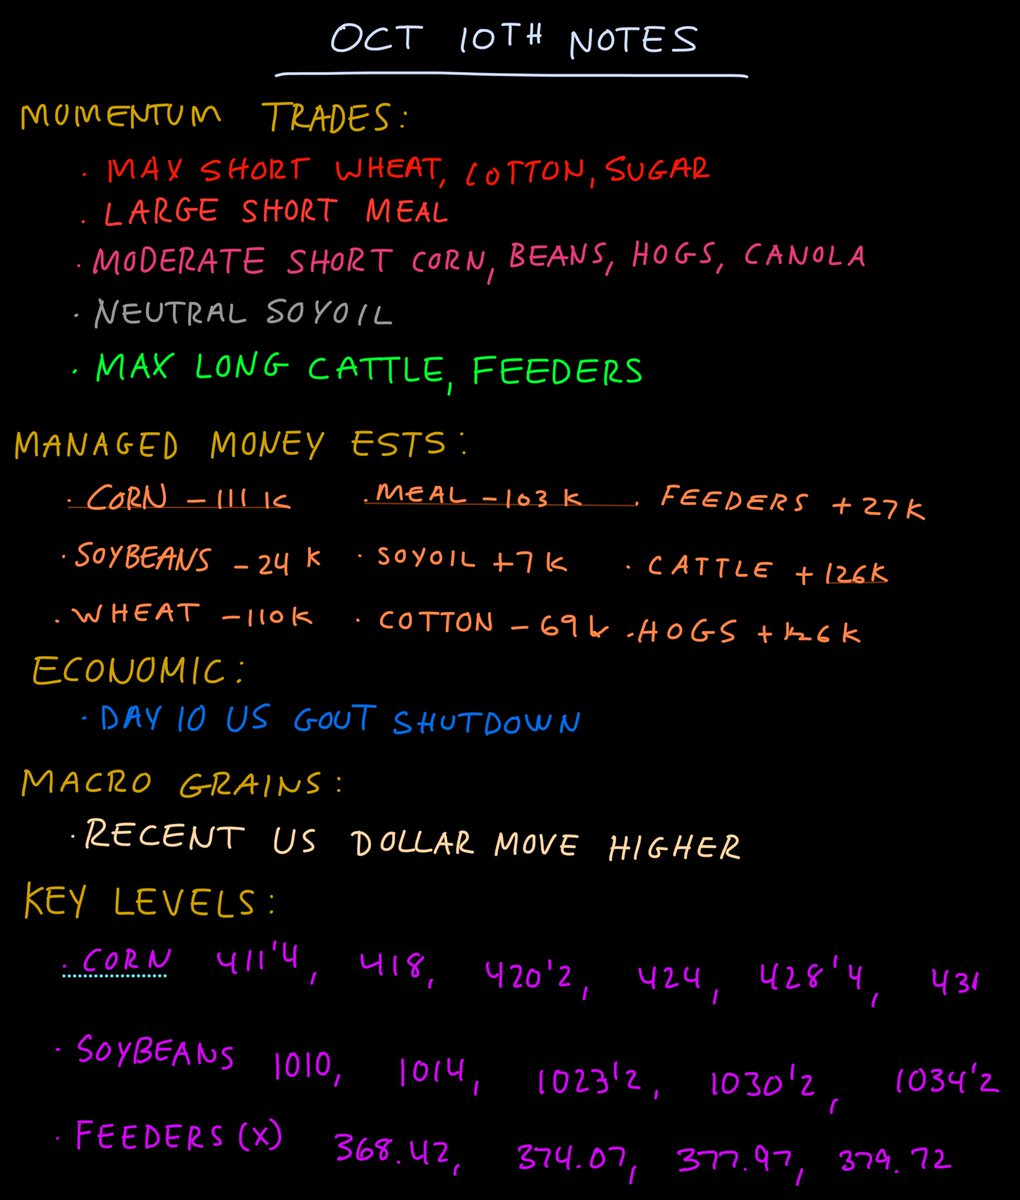 OCT 10TH NOTES
MOMENTUM TRADES:
· MAX SHORT WHEAT, COTTON, SUGAR
· LARGE SHORT MEAL
· MODERATE SHORT CORN, BEANS, HOGS, CANOLA
· NEUTRAL SOYOIL
· MAX LONG CATTLE, FEEDERS
MANAGED MONEY ESTS:
· CORN -111K · MEAL -103K · FEEDERS +27K
· SOYBEANS -24K · SOYOIL +7K · CATTLE +126K
· WHEAT -110K · COTTON -69K · HOGS
ECONOMIC:
· DAY 10 US GOUT SHUTDOWN
MACRO GRAINS:
· RECENT US DOLLAR MOVE HIGHER
KEY LEVELS:
· CORN 411'4, 418, 420'2, 424, 428'4, 431
· SOYBEANS 1010, 1014, 1023'2, 1030'2, 1034'2
· FEEDERS (X) 368.42, 374.07, 377.97, 379.72